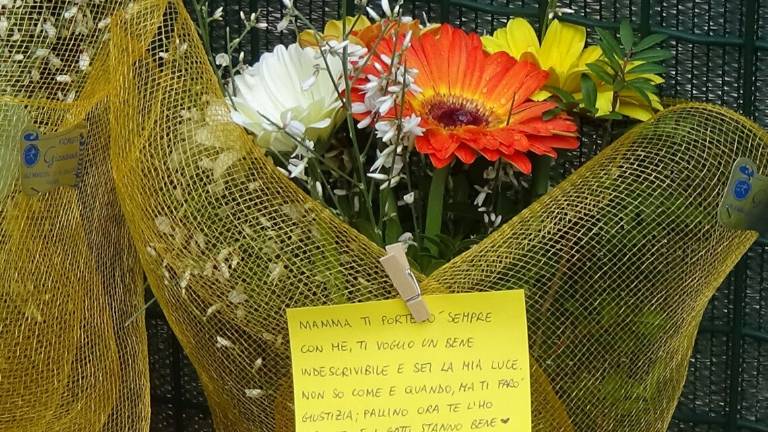 MAMMA TI PORTERO' SEMPRE
CON ME, TI VOGLIO UN BENE
INDESCRIVIBILE E SEI LA MIA LUCE.
NON SO COME E QUANDO, MA TI FARO'
GIUSTIZIA; PALLINO ORA TE L'HO
I GATTI STANNO BENE ♥